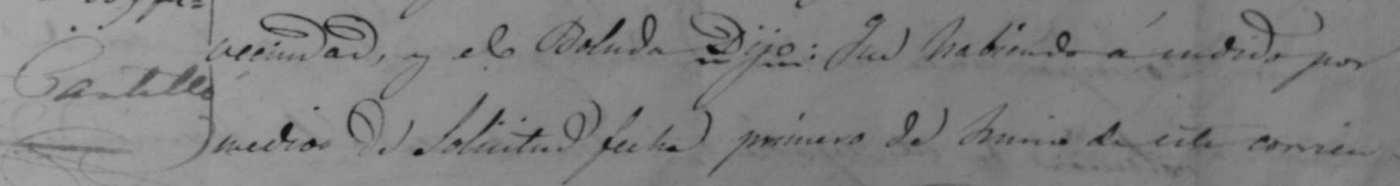 vecindad, y el Boluda Dijo: Que habiendo acudido por
Cantillo
medios de Solicitud fecha primero de Junio de este corrien-